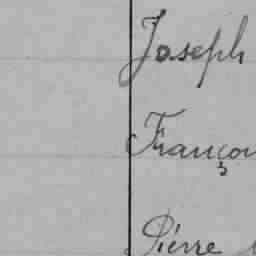 Joseph
Françoi
Pierre